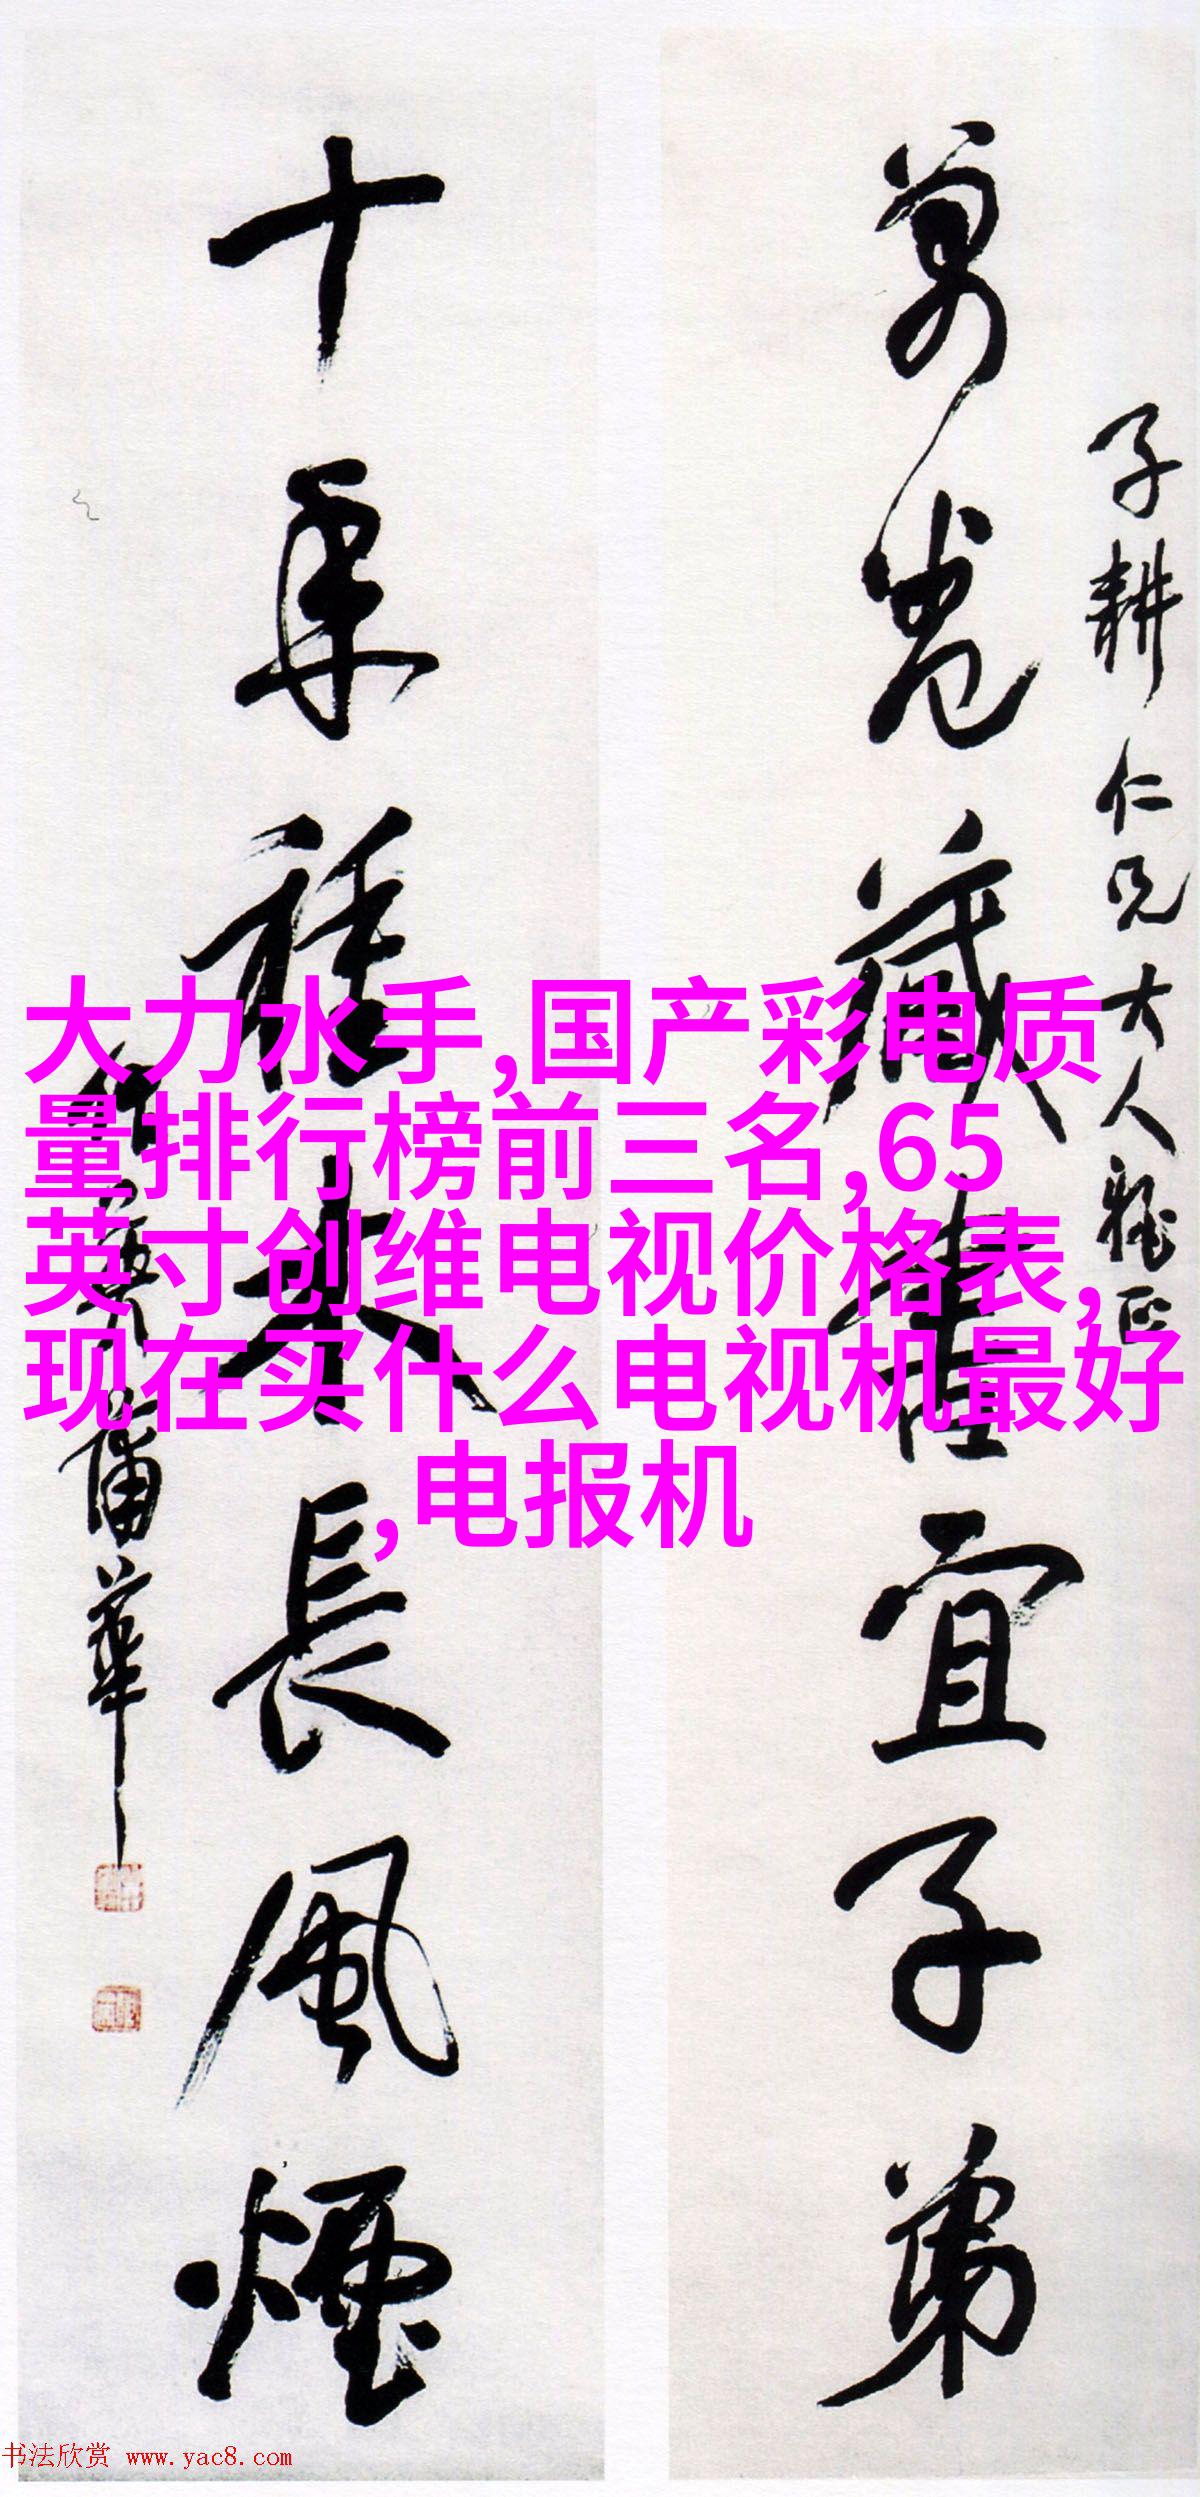 子耕仁兄大人雅正
萬卷藏書宜子弟
十年種木長風煙
蒲華
大力水手,国产彩电质
量排行榜前三名,65
英寸创维电视价格表,
现在买什么电视机最好
,电报机
书法欣赏 www.yac8.com